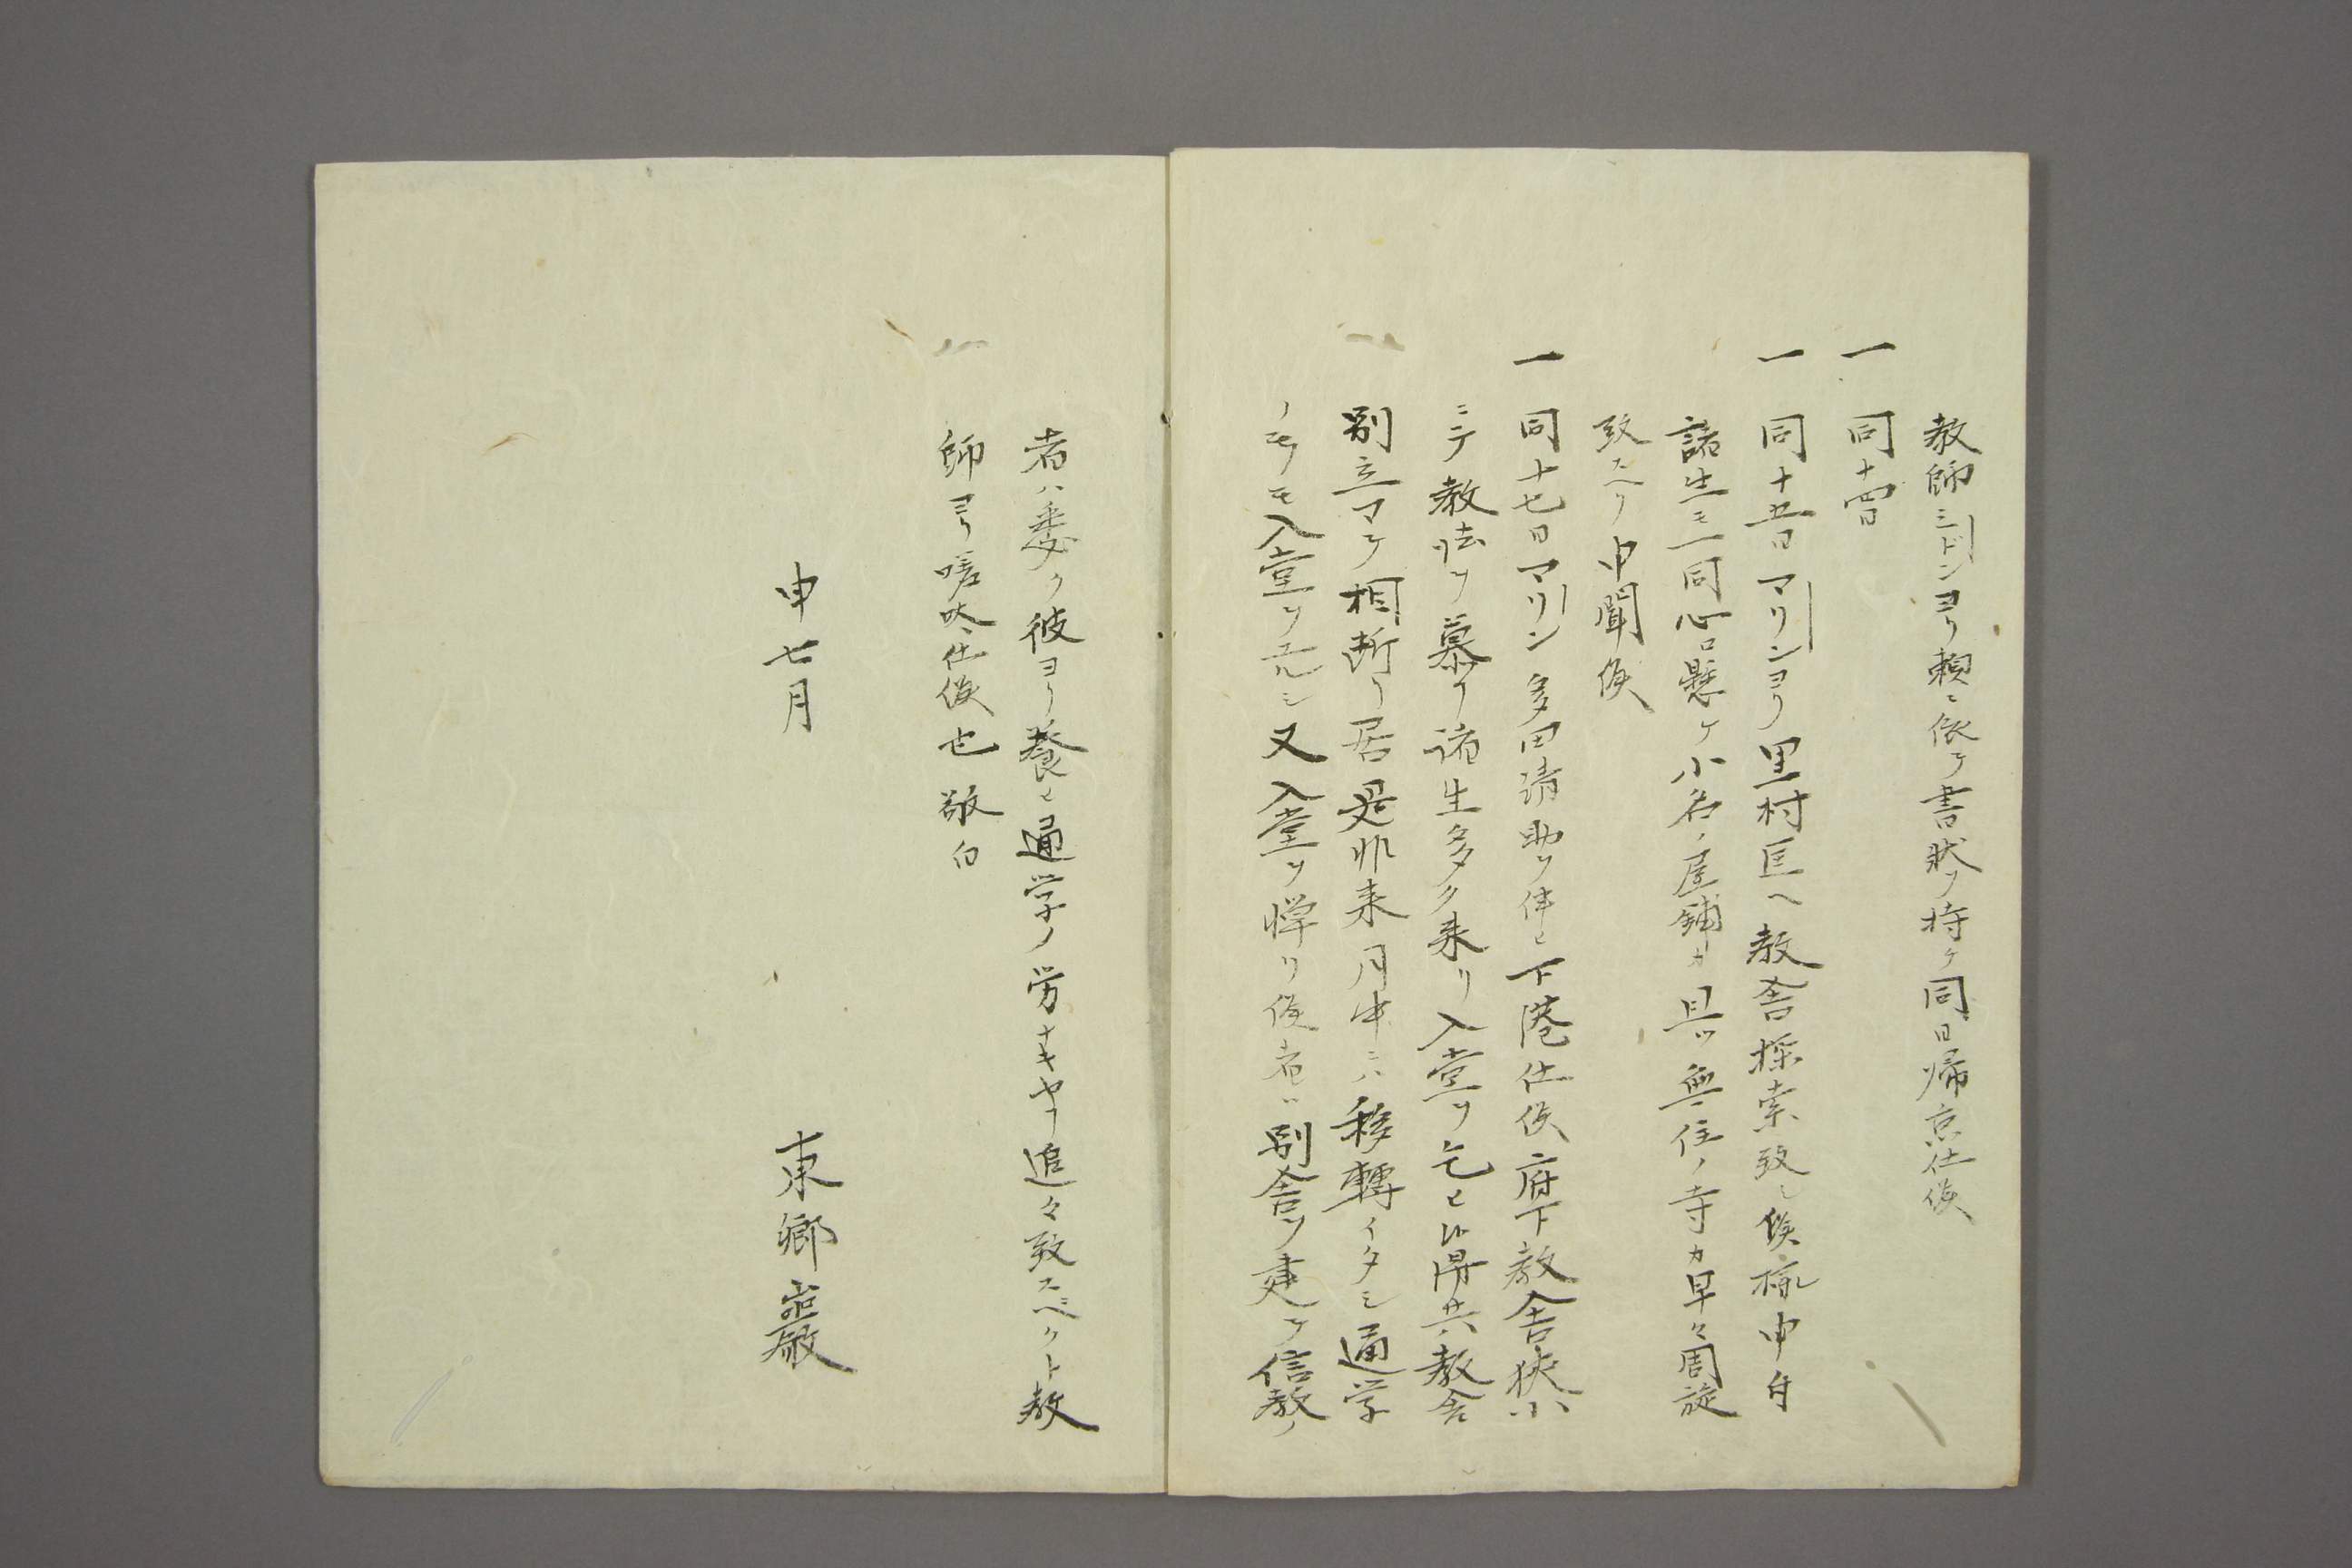 教師ミドンヨリ頼ニ依テ書状ヲ持ケ同日帰京仕候
一 同十四日
一 同十五日マリンヨリ里村匡ヘ教舎探索致シ候様申付
諸生モ一同心ニ懸ケ小名ノ屋鋪カ且ツ無住ノ寺カ早々周旋
致スヘク申聞候
一 同十七日マリン多田清助ヲ伴ヒ下港仕候府下教舎狭小
ニテ教法ヲ慕フ諸生多ク来リ入堂ヲ乞ヒ候得共教舎
別立マテ相断リ居是非来月中ニハ移轉イタシ通学
ノモノモ入堂ヲユルシ又入堂ヲ憚リ候者ハ別舎ヲ建テ信教ノ
者ハ委ク彼ヨリ養ヒ通学ノ労ナキヤフ追々致スヘクト教
師ヨリ咄仕候也敬白
申七月
東郷巌